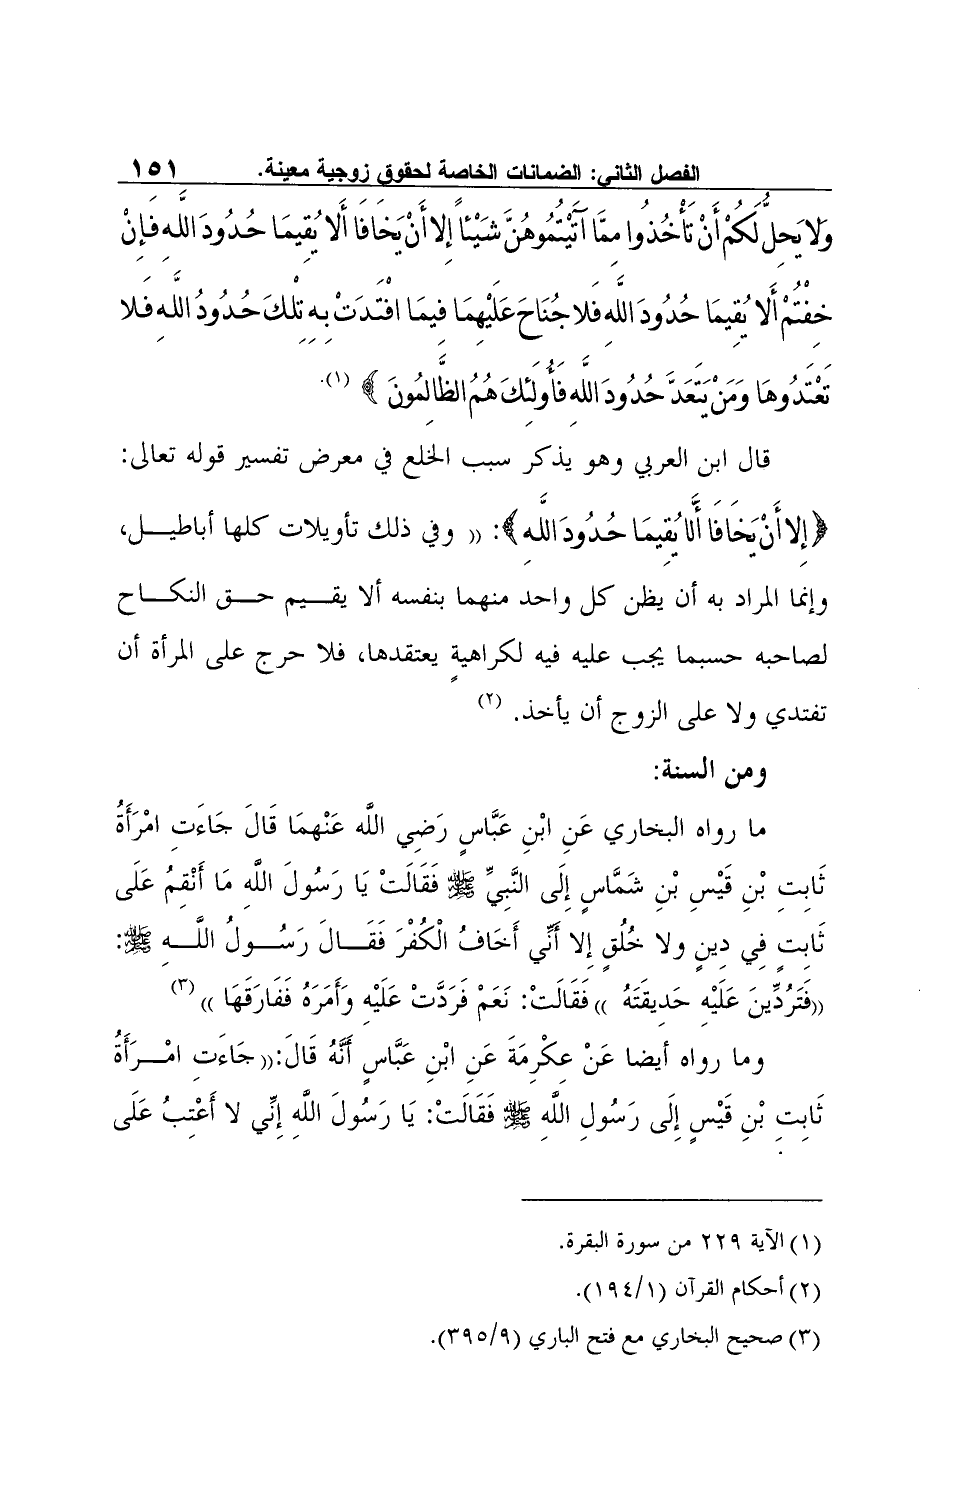 الفصل الثاني: الضمانات الخاصة لحقوق زوجية معينة. ١٥١
وَلَا يَحِلُّ لَكُمْ أَنْ تَأْخُذُوا مِمَّا آتَيْتُمُوهُنَّ شَيْئاً إِلا أَنْ يَخَافَا أَلا يُقِيمَا حُدُودَ اللَّهِ فَإِنْ
خِفْتُمْ أَلا يُقِيمَا حُدُودَ اللَّهِ فَلا جُنَاحَ عَلَيْهِمَا فِيمَا افْتَدَتْ بِهِ تِلْكَ حُدُودُ اللَّهِ فَلا
تَعْتَدُوهَا وَمَنْ يَتَعَدَّ حُدُودَ اللَّهِ فَأُولَئِكَ هُمُ الظَّالِمُونَ ﴾ (١).
قال ابن العربي وهو يذكر سبب الخلع في معرض تفسير قوله تعالى:
﴿ إِلا أَنْ يَخَافَا أَلَّا يُقِيمَا حُدُودَ اللَّهِ ﴾: (( وفي ذلك تأويلات كلها أباطيـــل،
وإنما المراد به أن يظن كل واحد منهما بنفسه ألا يقـــيم حـــق النكـــاح
لصاحبه حسبما يجب عليه فيه لكراهيةٍ يعتقدها، فلا حرج على المرأة أن
تفتدي ولا على الزوج أن يأخذ. (٢)
ومن السنة:
ما رواه البخاري عَنِ ابْنِ عَبَّاسٍ رَضِي اللَّه عَنْهمَا قَالَ جَاءَتِ امْرَأَةُ
ثَابِتِ بْنِ قَيْسِ بْنِ شَمَّاسٍ إِلَى النَّبِيِّ ﷺ فَقَالَتْ يَا رَسُولَ اللَّهِ مَا أَنْقِمُ عَلَى
ثَابِتٍ فِي دِينٍ ولا خُلُقٍ إِلا أَنِّي أَخَافُ الْكُفْرَ فَقَـــالَ رَسُـــولُ اللَّـــهِ ﷺ:
((فَتَرُدِّينَ عَلَيْهِ حَدِيقَتَهُ )) فَقَالَتْ: نَعَمْ فَرَدَّتْ عَلَيْهِ وَأَمَرَهُ فَفَارَقَهَا )) (٣)
وما رواه أيضا عَنْ عِكْرِمَةَ عَنِ ابْنِ عَبَّاسٍ أَنَّهُ قَالَ:((جَاءَتِ امْـــرَأَةُ
ثَابِتِ بْنِ قَيْسٍ إِلَى رَسُولِ اللَّهِ ﷺ فَقَالَتْ: يَا رَسُولَ اللَّهِ إِنِّي لا أَعْتِبُ عَلَى
(١) الآية ٢٢٩ من سورة البقرة.
(٢) أحكام القرآن (١٩٤/١).
(٣) صحيح البخاري مع فتح الباري (٣٩٥/٩).